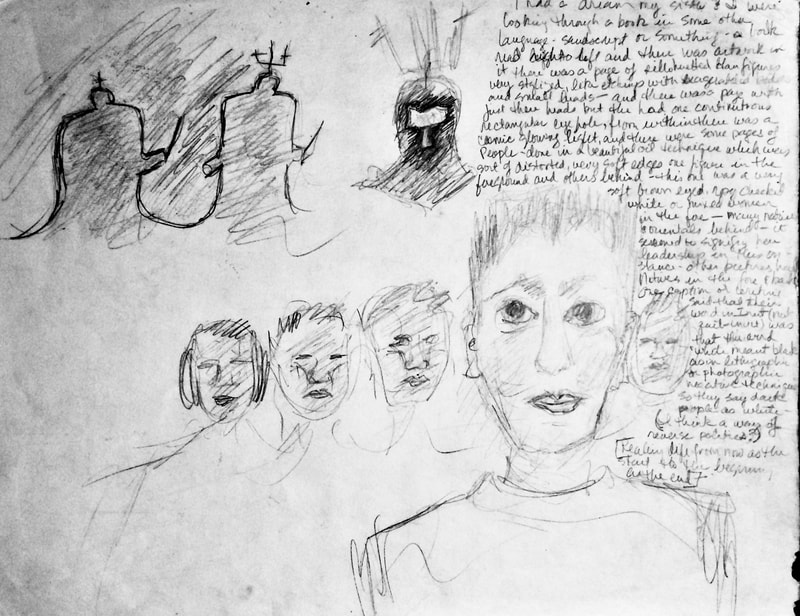 I had a dream my sister & I were
looking through a book in some other
language - sandscript or something - a book
read right to left and there was artwork in
it there was a page of silhouetted figures
very stylized, like etchings with exagerated bodies
and small heads - and there was a page with
just there heads but the had one continuous
rectangular eye hole, from within there was a
cosmic glowing light, and there were some pages of
People - done in a beautiful oil technique which was
sort of distorted, very soft edges one figure in the
foreground and others behind - this one was a very
soft brown eyed, rosy cheeked
white or mixed woman
in the fore - many
orientals behind - it
seemed to signify her
leadership in
stance - other pictures had
in the fore & back
one caption of
said that their
word in (not
) was
that the word
white meant black
as in lithographic
or photographic
negative technique
so they say dark
people as white -
(I think a way of
reverse politics?)
[reading left from now as the
start to the beginning
as the end]